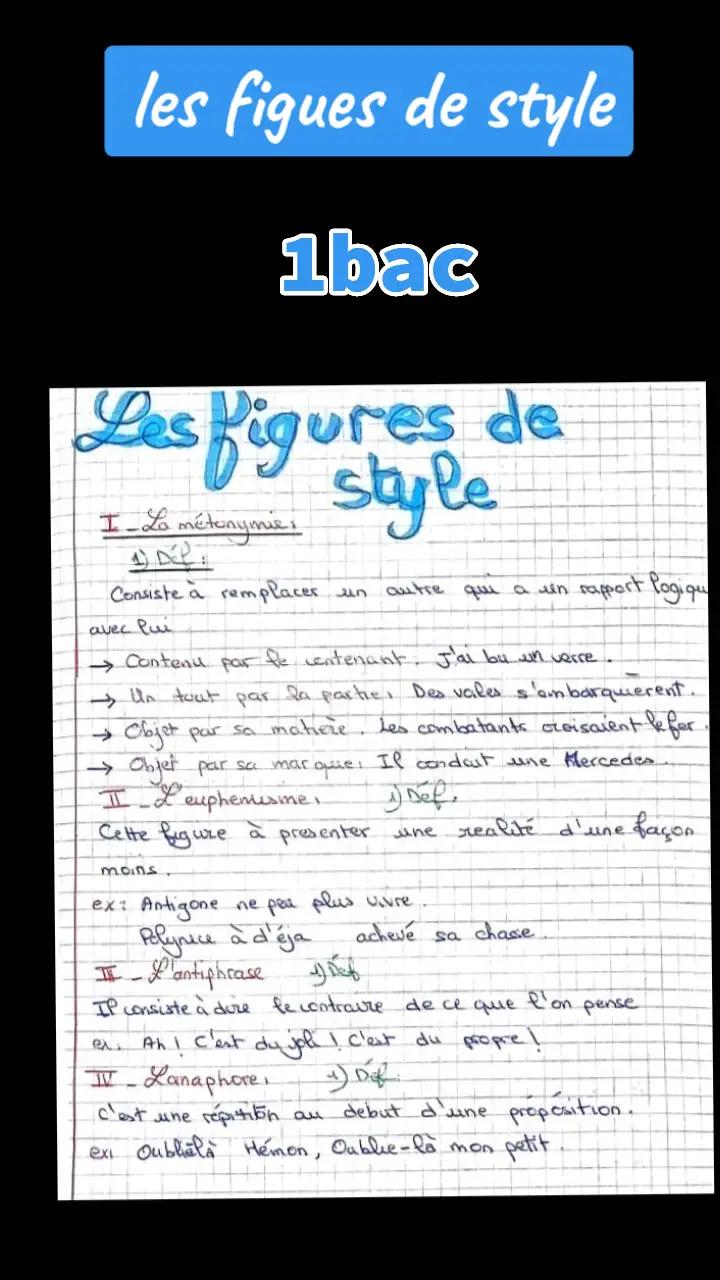 les figues de style
1bac
Les figures de
style
I - La métonymie:
1) Déf:
Consiste à remplacer un autre qui a un rapport logiqu
avec lui
→ Contenu par le contenant. J'ai bu un verre.
→ Un tout par la partie. Des voles s'embarquièrent.
→ Objet par sa matière. Les combatants croisaient le fer.
→ Objet par sa marque: Il conduit une Mercedes.
II - L'euphemisme: 1) Déf.
Cette figure à presenter une realité d'une façon
moins.
ex: Antigone ne peu plus vivre.
Polynice à d'éja achevé sa chasse.
III - L'antiphrase 1) Déf
Il consiste à dire le contraire de ce que l'on pense
ex. Ah! C'est du joli! C'est du propre!
IV - Lanaphore: 1) Déf.
C'est une répitition au debut d'une proposition.
ex: Oublielà Hémon, Oublie-là mon petit.